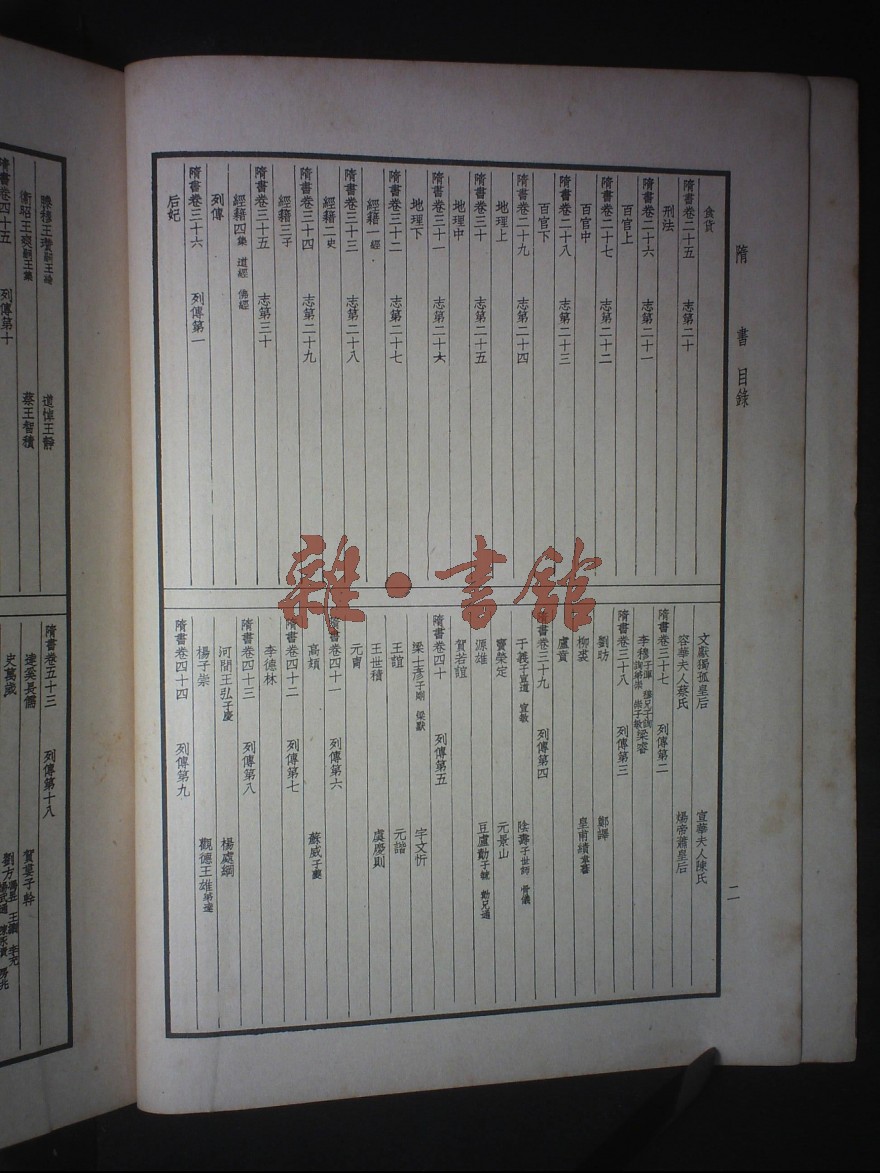 隋書 目錄
二
食貨
隋書卷二十五 志第二十
刑法
隋書卷二十六 志第二十一
百官上
隋書卷二十七 志第二十二
百官中
隋書卷二十八 志第二十三
百官下
隋書卷二十九 志第二十四
地理上
隋書卷三十 志第二十五
地理中
隋書卷三十一 志第二十六
地理下
隋書卷三十二 志第二十七
經籍一 經
隋書卷三十三 志第二十八
經籍二 史
隋書卷三十四 志第二十九
經籍三 子
隋書卷三十五 志第三十
經籍四 集 道經 佛經
列傳
隋書卷三十六 列傳第一
后妃
文獻獨孤皇后 宣華夫人陳氏
容華夫人蔡氏 煬帝蕭皇后
隋書卷三十七 列傳第二
李穆 子渾 穆兄子詢 詢弟崇 崇子敏 梁睿
隋書卷三十八 列傳第三
劉昉 鄭譯
柳裘 皇甫績 韋謩
盧賁
隋書卷三十九 列傳第四
于義 子宣道 宣敏 陰壽 子世師 骨儀
竇榮定 元景山
源雄 豆盧勣 子毓 勣兄通
賀若誼
隋書卷四十 列傳第五
梁士彥 子剛 梁默 宇文忻
王誼 元諧
王世積 虞慶則
元冑
隋書卷四十一 列傳第六
高熲 蘇威 子夔
李德林
隋書卷四十二 列傳第七
河間王弘 子慶 楊處綱
隋書卷四十三 列傳第八
楊子崇 觀德王雄 弟達
隋書卷四十四 列傳第九
滕穆王瓚 嗣王綸 道悼王靜
衛昭王爽 嗣王集 蔡王智積
隋書卷四十五 列傳第十
隋書卷五十三 列傳第十八
達奚長儒 賀婁子幹
史萬歲 劉方
雜·書館